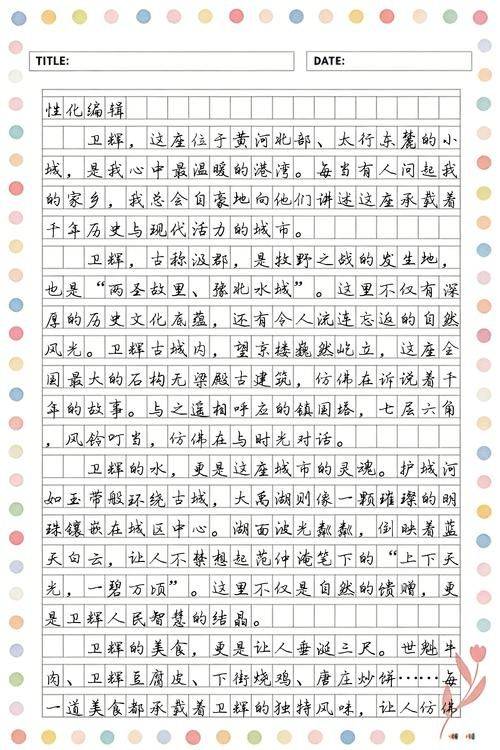 TITLE: DATE:
性化编辑
卫辉，这座位于黄河北部、太行东麓的小
城，是我心中最温暖的港湾。每当有人问起我
的家乡，我总会自豪地向他们讲述这座承载着
千年历史与现代活力的城市。
卫辉，古称汲郡，是牧野之战的发生地，
也是“两圣故里、豫北水城”。这里不仅有深
厚的历史文化底蕴，还有令人流连忘返的自然
风光。卫辉古城内，望京楼巍然屹立，这座全
国最大的石构无梁殿古建筑，仿佛在诉说着千
年的故事。与之遥相呼应的镇国塔，七层六角
，风铃叮当，仿佛在与时光对话。
卫辉的水，更是这座城市的灵魂。护城河
如玉带般环绕古城，大禹湖则像一颗璀璨的明
珠镶嵌在城区中心。湖面波光粼粼，倒映着蓝
天白云，让人不禁想起范仲淹笔下的“上下天
光，一碧万顷”。这里不仅是自然的馈赠，更
是卫辉人民智慧的结晶。
卫辉的美食，更是让人垂涎三尺。世魁牛
肉、卫辉豆腐皮、下街烧鸡、唐庄炒饼……每
一道美食都承载着卫辉的独特风味，让人仿佛